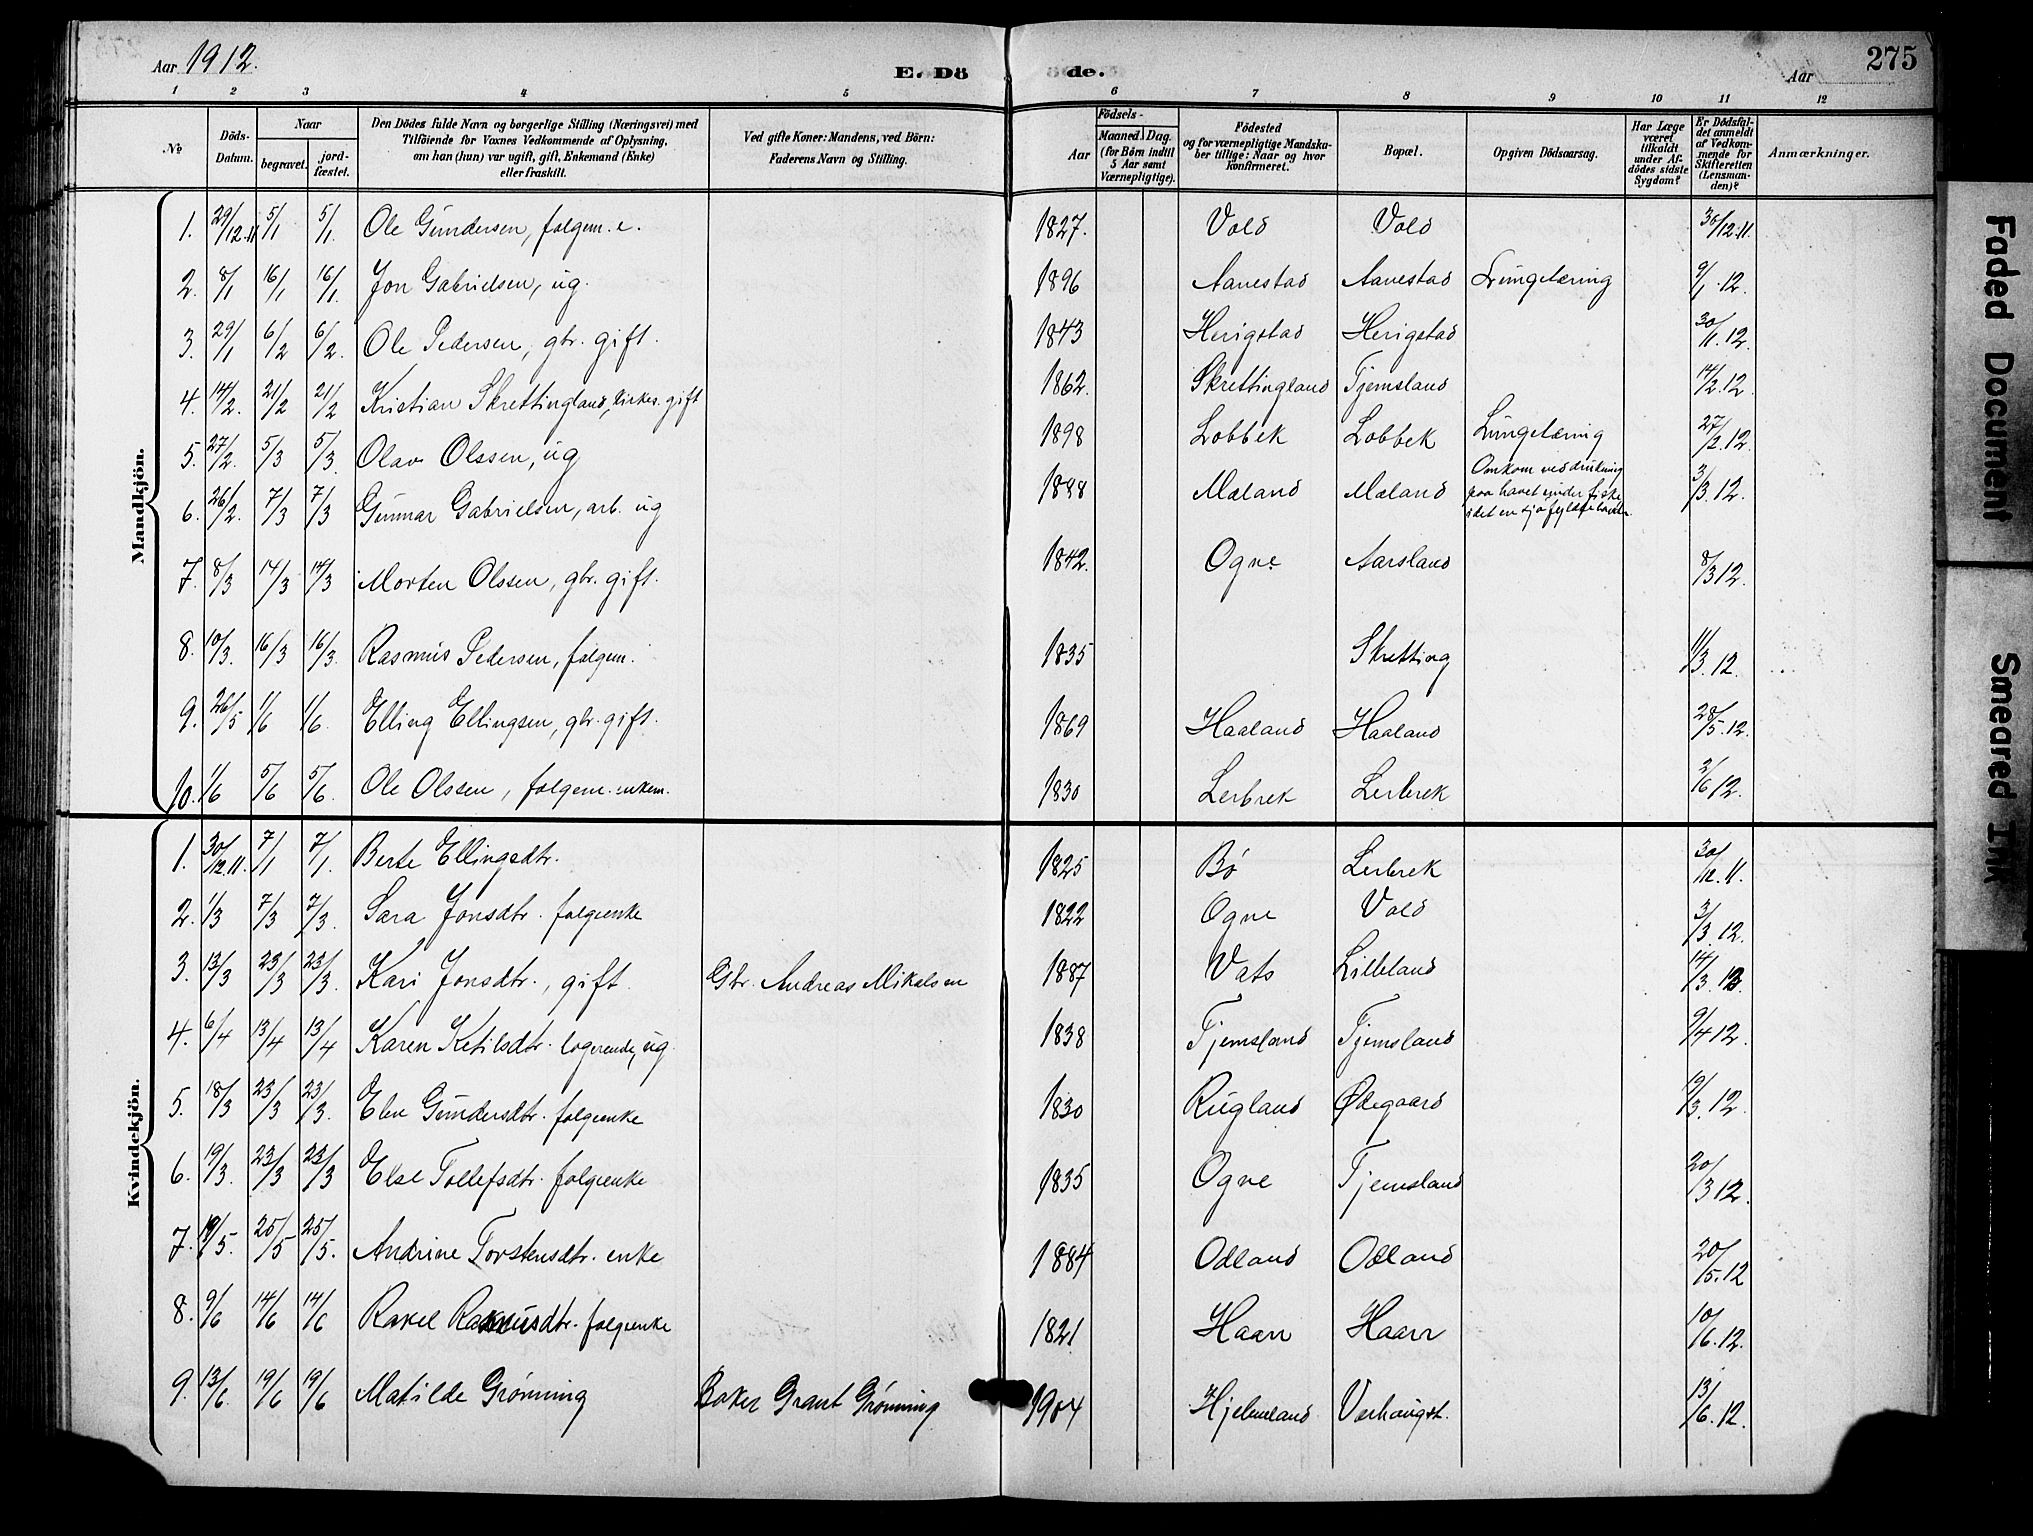 Aar 1912.
E. Dö de.
Aar
275
1 2 3 4 5 6 7 8 9 10 11 12
No
Döds-Datum.
Naar
begravet.
jordfæstet.
Den Dödes fulde Navn og borgerlige Stilling (Næringsvei) med
Tilföiende for Voxnes Vedkommende af Oplysning,
om han (hun) var ugift, gift, Enkemand (Enke)
eller fraskilt.
Ved gifte Koner: Mandens, ved Börn:
Faderens Navn og Stilling.
Födsels-
Aar
Maaned. Dag.
(for Börn indtil
5 Aar samt
Værnepligtige).
Födested
og for værnepligtige Mandska-
ber tillige: Naar og hvor
konfirmeret.
Bopæl.
Opgiven Dödsaarsag.
Har Læge
været
tilkaldt
under Af-
dödes sidste
Sygdom?
Er Dödsfal-
det anmeldt
af Vedkom-
mende for
Skifteretten
(Lensman-
den)?
Anmærkninger.
Mandkjön.
1. 29/12.11 5/1 5/1. Ole Gundersen, folgem. e. 1827. Vold Vold 30/12.11.
2. 8/1 16/1 16/1. Jon Gabrielsen, ug. 1896 Aanestad Aanestad Lungetæring 9/1.12.
3. 29/1 6/2 6/2. Ole Pedersen, gbr. gift. 1843 Herigstad Herigstad 30/1.12.
4. 14/2. 21/2 21/2 Kristian Skrettingland, kirkes. gift 1862. Skrettingland Tjemsland 14/2.12
5. 27/2. 5/3 5/3. Olav Olssen, ug 1898 Lobbek Lobbek Lungetæring 27/2.12.
6. 26/2. 7/3 7/3 Gunnar Gabrielsen, arb. ug 1888 Mæland Mæland Omkom ved drukning
paa havet under fiske
idet en sjø fyldte baaden. 3/3.12.
7. 8/3 14/3 14/3 Morten Olssen, gbr. gift. 1842. Ogne Aarsland 8/3 12.
8. 10/3. 16/3 16/3. Rasmus Pedersen, folgem. 1835 Skretting 11/3.12.
9. 26/5 1/6 1/6. Elling Ellingsen, gbr. gift. 1869 Haaland Haaland 28/5.12.
10. 1/6 5/6 5/6. Ole Olssen, folgem. enkem. 1830 Lerbrek Lerbrek 2/6 12.
Kvindekjön.
1. 30/12.11. 7/1 7/1. Berte Ellingsdtr. 1825 Bø Lerbrek 30/12.11.
2. 1/3 7/3 7/3. Sara Jonsdtr. folgeenke 1822 Ogne Vold 3/3.12.
3. 13/3 23/3 23/3. Kari Jonsdtr., gift. Gbr. Andreas Mikalsen 1887 Vats Lilleland 14/3.12.
4. 6/4 13/4 13/4 Karen Ketilsdtr. logerende, ug. 1838 Tjemsland Tjemsland 9/4 12.
5. 18/3 23/3 23/3. Elen Gundersdtr. folgeenke 1830 Rugland Ødegaard 19/3.12.
6. 19/3. 23/3 23/3 Else Tollefsdtr. folgeenke 1835 Ogne Tjemsland 20/3 12.
7. 19/5. 25/5 25/5. Andrine Torstensdtr. enke 1884 Odland Odland 20/5.12
8. 9/6 14/6 14/6 Rakel Rasmusdtr. folgeenke 1821 Haarr Haarr 10/6.12.
9. 13/6. 19/6 19/6 Matilde Grønning Baker Grant Grønning 1904 Hjelmeland Varhaugst. 13/6.12.
Faded Document
Smeared Ink